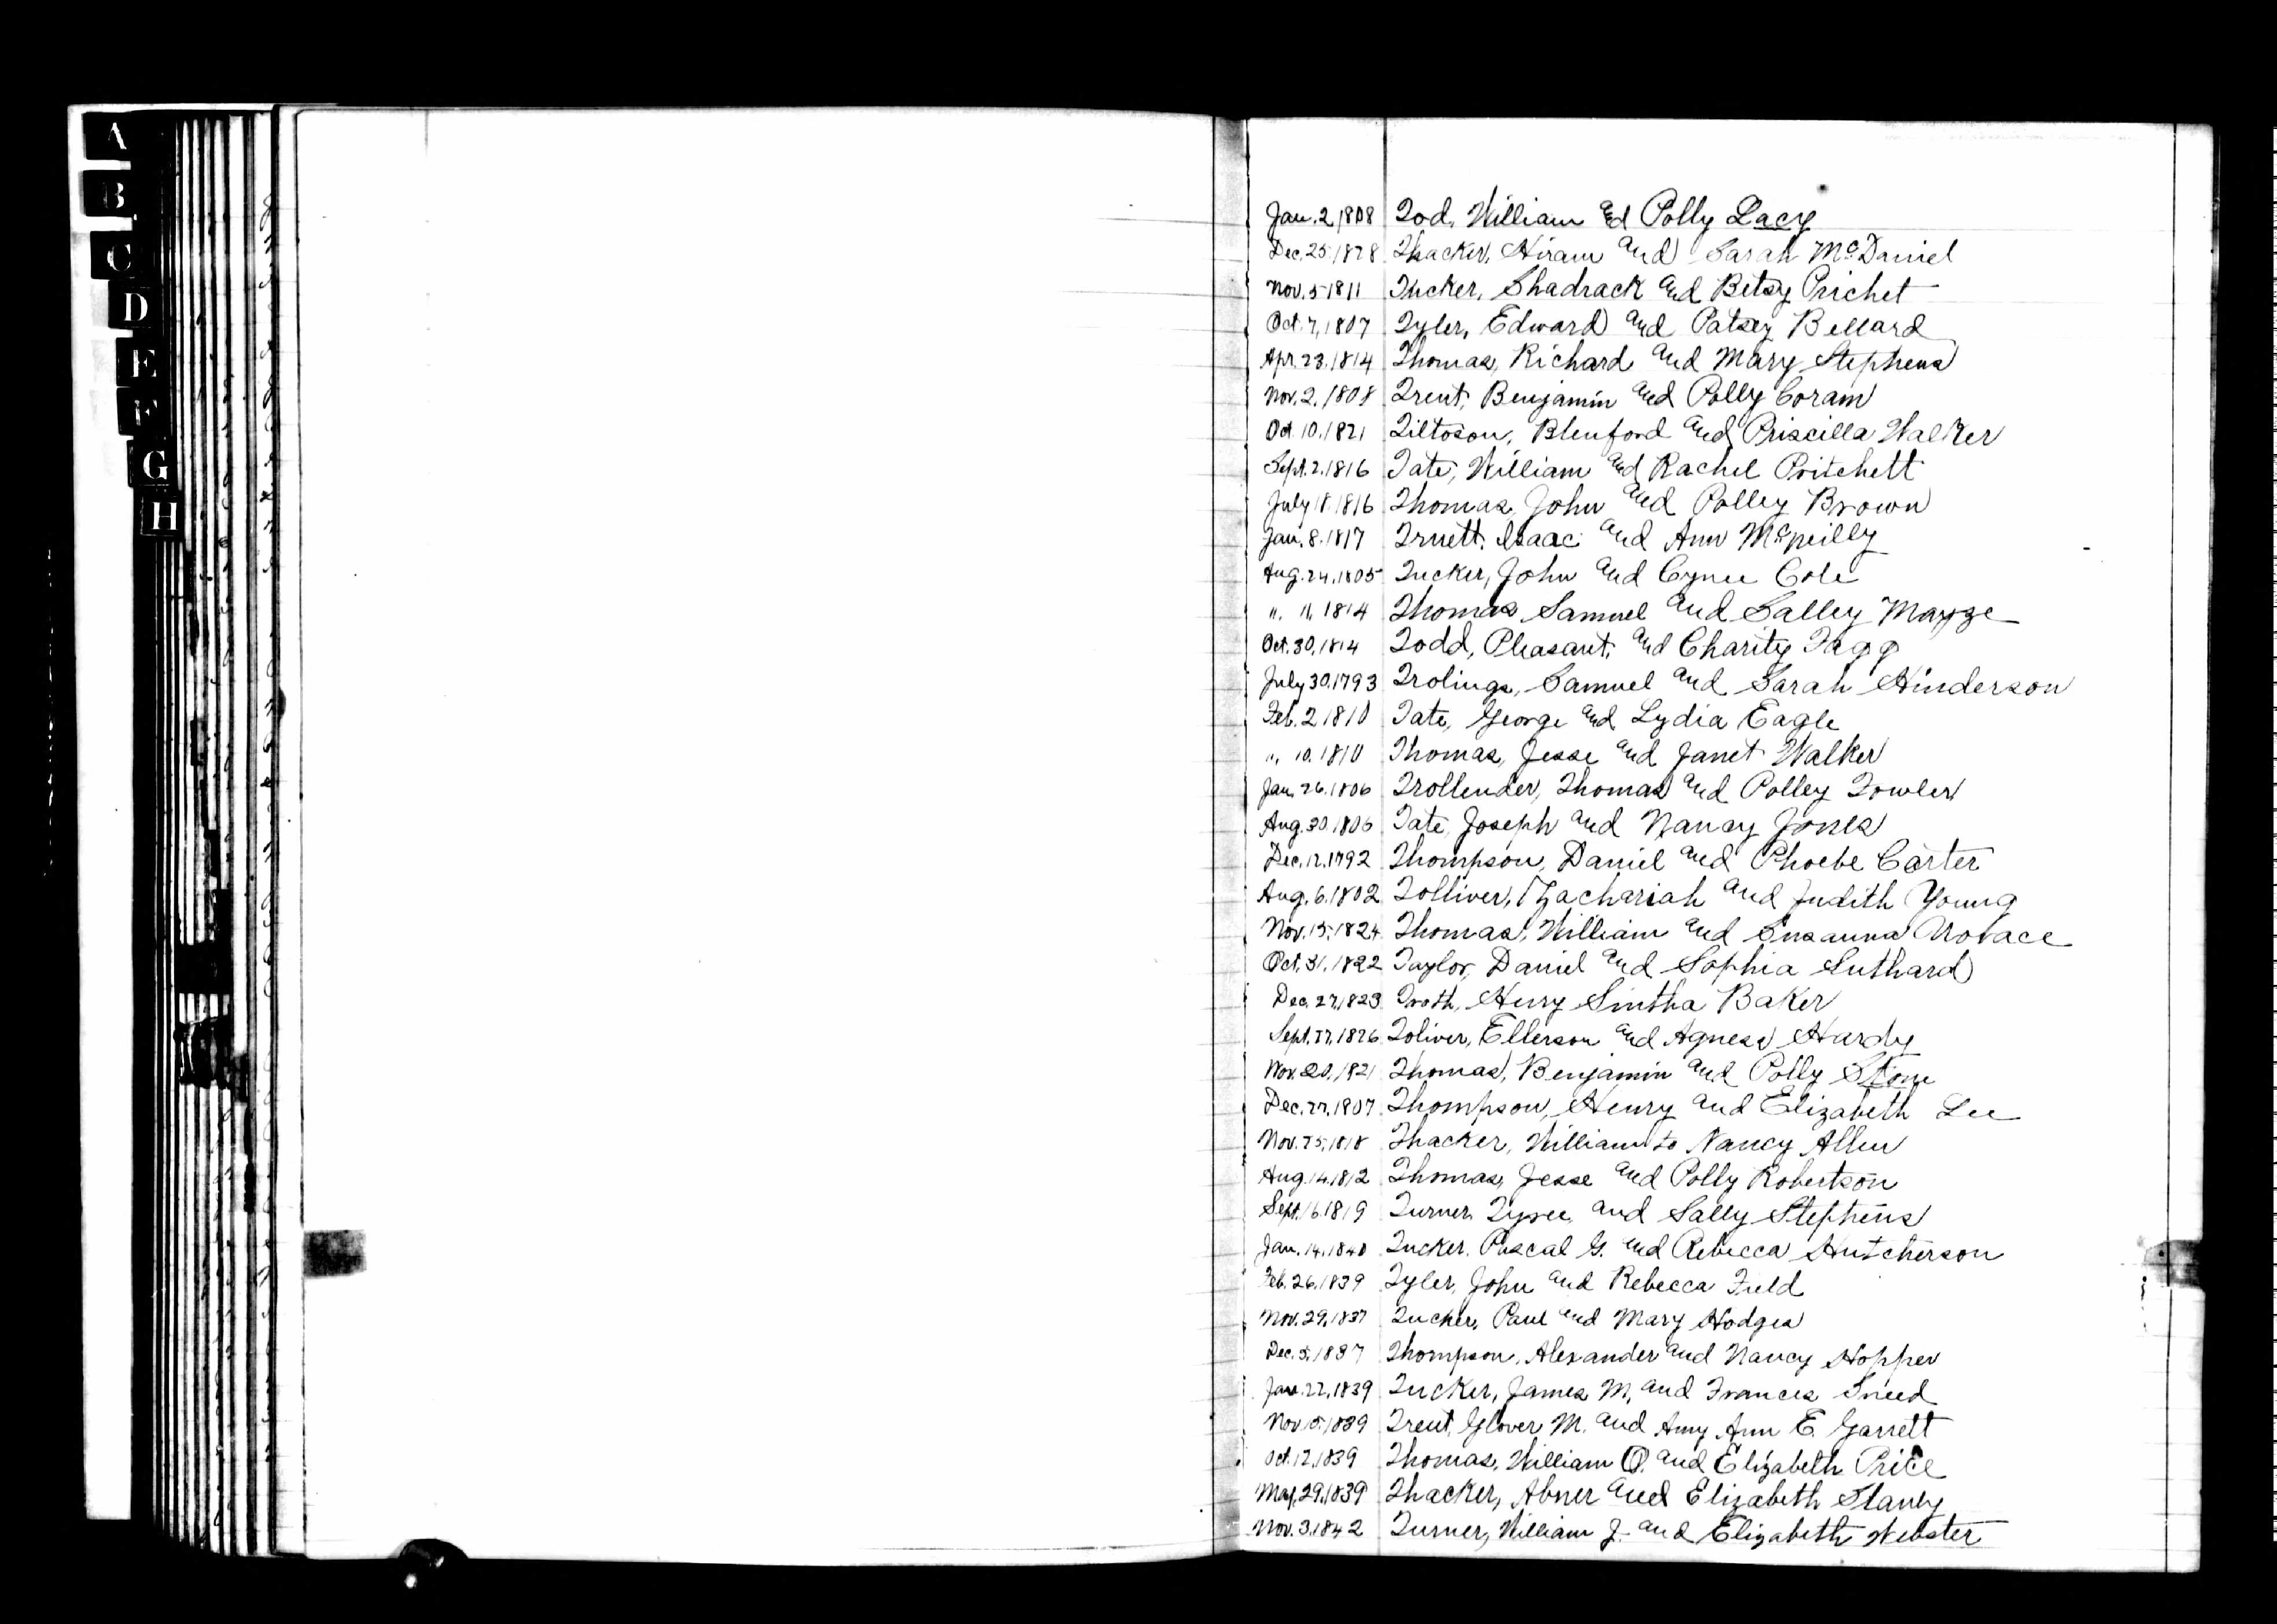 A
B
C
D
E
F
G
H
Jan. 2, 1808 Tod, William and Polly Lacy
Dec. 25, 1828 Thacker, Hiram and Sarah McDaniel
Nov. 5 1811 Tucker, Shadrack and Betsy Prichet
Oct. 7, 1807 Tyler, Edward and Patsey Bellard
Apr. 23, 1814 Thomas, Richard and Mary Stephens
Nov. 2, 1808 Trent, Benjamin and Polly Coram
Oct. 10, 1821 Tiltoson, Blenford and Priscilla Walker
Sept. 2, 1816 Tate, William and Rachel Pritchett
July 18, 1816 Thomas, John and Polley Brown
Jan. 8, 1817 Truett, Isaac and Ann Mcneilly
Aug. 24, 1805 Tucker, John and Cole
" 11, 1814 Thomas Samuel and Salley Mayze
Oct. 30, 1814 Todd, Pleasant, and Charity Tagg
July 30, 1793 Trolings, Samuel and Sarah Hinderson
Feb. 2 1810 Tate, George and Lydia Eagle
" 10, 1810 Thomas, Jesse and Janet Walker
Jan. 26, 1806 Trollender, Thomas and Polley Towler
Aug. 30, 1806 Tate, Joseph and Nancy Jones
Dec. 12, 1792 Thompson, Daniel and Phoebe Carter
Aug. 6, 1802 Tolliver, Zachariah and Judith Young
Nov. 15, 1824 Thomas, William and Susanna
Oct. 31, 1822 Taylor, Daniel and Sophia Suthard
Dec. 27, 1823 Henry Sintha Baker
Sept. 27, 1826 Toliver, Ellerson and Agness Hardy
Nov. 20, 1821 Thomas, Benjamin and Polly Stone
Dec. 27, 1807 Thompson, Henry and Elizabeth Lee
Nov. 25, 1818 Thacker, William to Nancy Allen
Aug. 14, 1812 Thomas, Jesse and Polly Robertson
Sept. 16, 1819 Turner, Tyree and Sally Stephens
Jan. 14, 1840 Tucker, Pascal G. and Rebecca Hutcherson
Feb. 26, 1839 Tyler, John and Rebecca Field
Nov. 29, 1837 Tucker, Paul and Mary Hodges
Dec. 5, 1837 Thompson, Alexander and Nancy Hopper
Jan. 22, 1839 Tucker, James M. and Frances Sneed
Nov. 15, 1839 Trent, Glover M. and Amy Ann E. Garrett
Oct. 12, 1839 Thomas, William O. and Elizabeth Price
May 29, 1839 Thacker, Abner and Elizabeth Stanly
Nov. 3, 1842 Turner, William J. and Elizabeth Webster